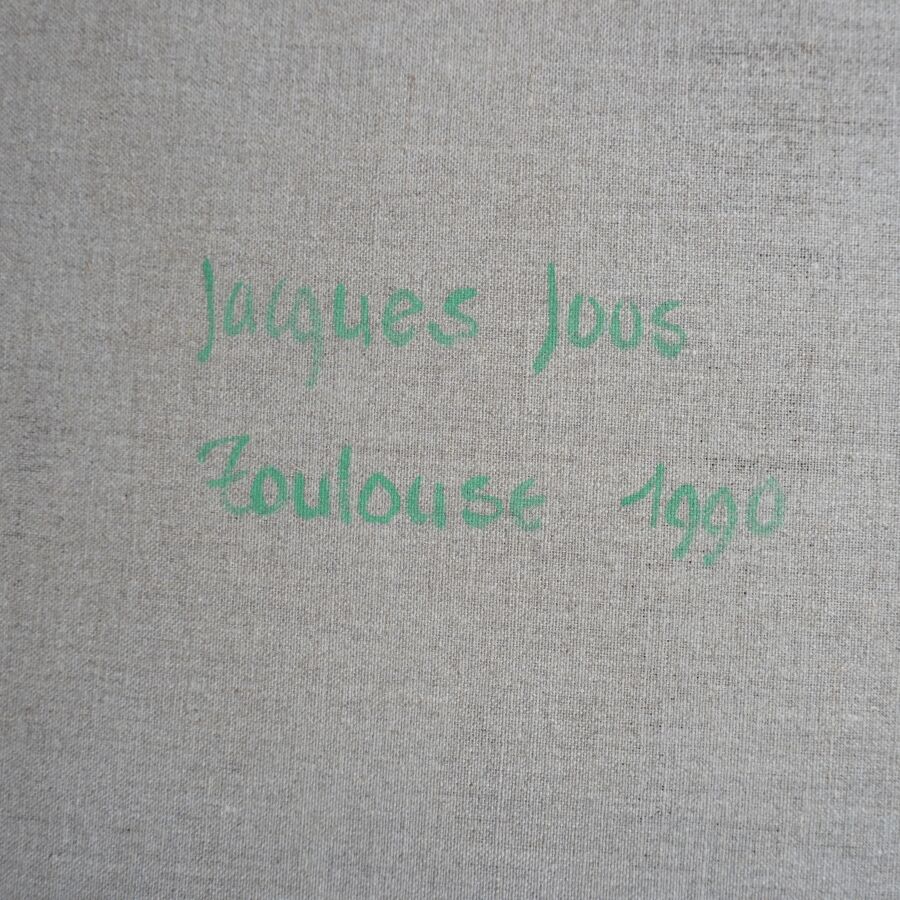 Jacques Joos
Toulouse 1990